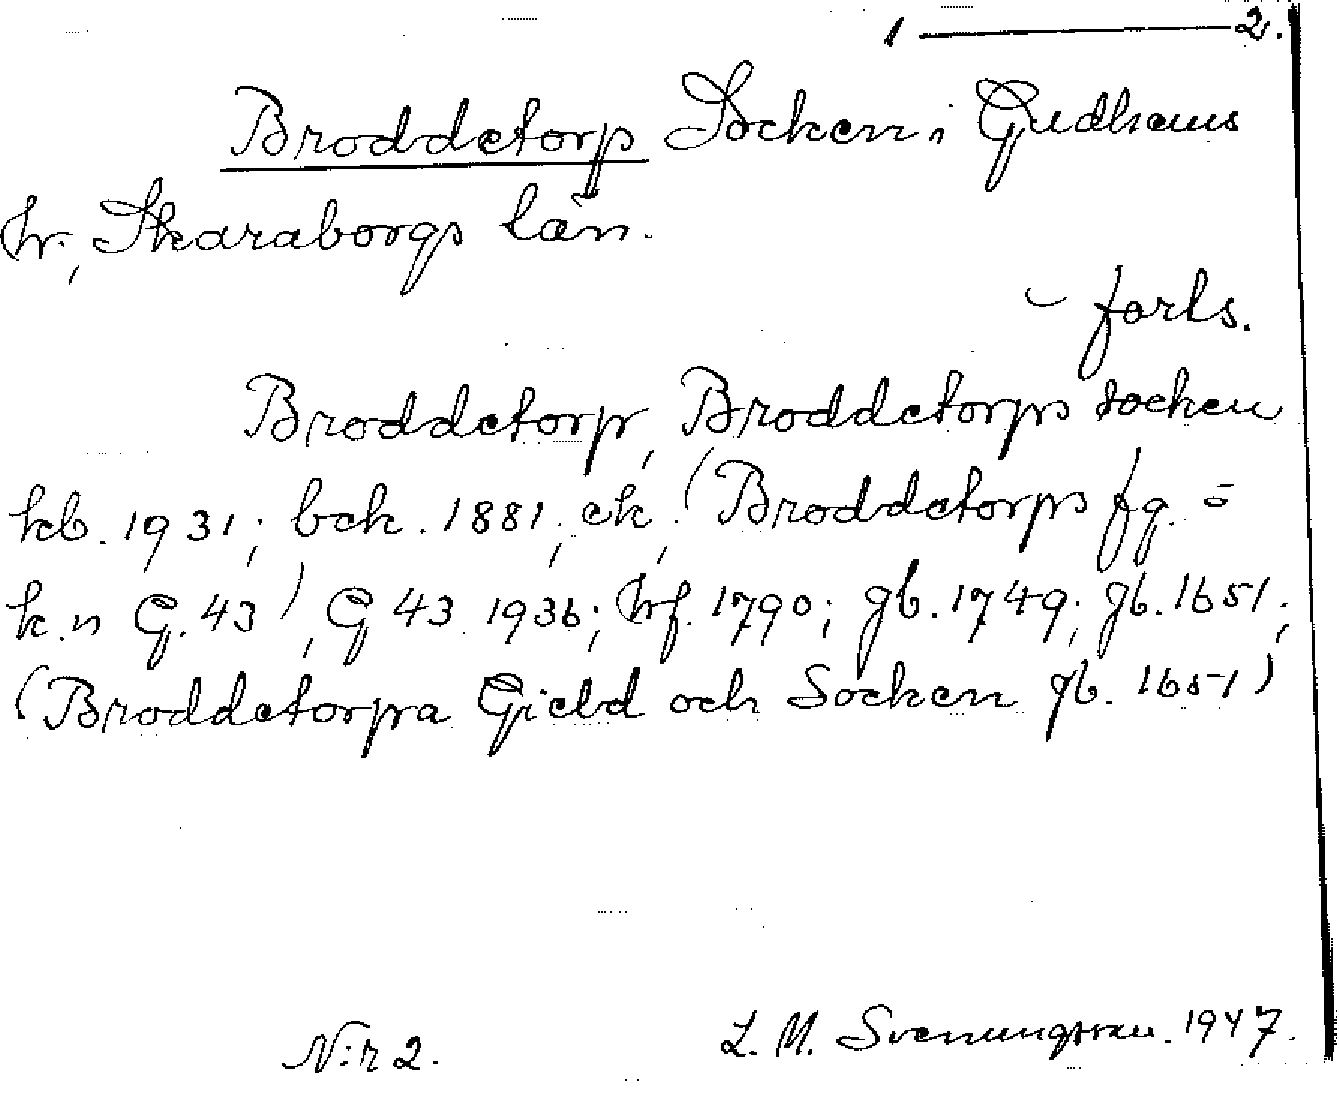 1 ——— 2.
Broddetorp Socken i Gudhems
hr, Skaraborgs län.
– forts.
Broddetorp, Broddetorps socken
kb. 1931; bek. 1881, ek, (Broddetorps fg. =
k.n G. 43), G 43 1936; hrf. 1790; gb. 1749; gb. 1651;
(Broddetorpa Gield och Socken gb. 1651)
N:r 2. L. M. Svenungsson. 1947.